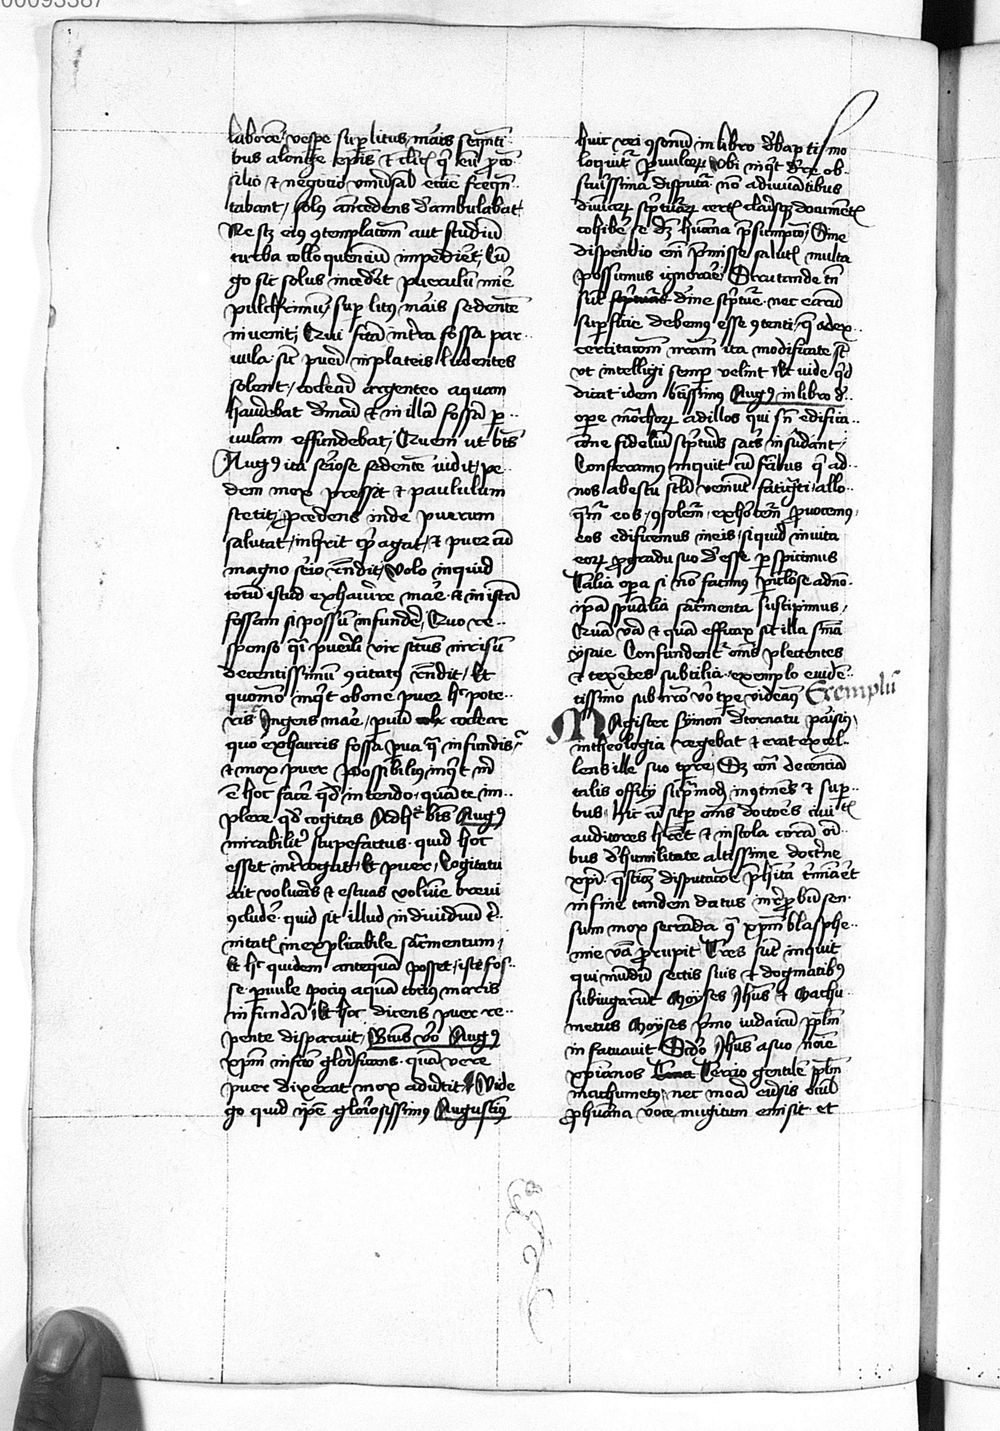 00093387
labore vespe sup litus maris sequenti
bus a longe epis et cleri q eu p con
silio et negotio universal ecce frequen
tabant, solus antecedens deambulabat
Ne scz eius contemplatiom aut studiu
turba colloquenciu impediret, Cu
go sic solus incedet puerulu mire
pulcherimu, sup litus maris sedente
invenit, Qui facta intra fossa par
uula sic pueri in plateis ludentes
solent, cocleari argenteo aquam
hauriebat de mari et in illa fossa p
uulam effundebat, Quem ut bts
Aug9 ita seriose sedente vidit, pe
dem mox pressit et paululum
stetit, procedens inde puerum
salutat, inquirit quid agat, et puer cu
magno serio respondit, Volo inquid
totu istud exhaurire mare et in ista
fossam si possum infundere, Quo re
sponso quasi puerili vir sanctus in risu
decentissimu concitatus respondit, Et
quomodo inquit o bone puer hoc pote
ris Ingens mare, parvu coclear
quo exhauris fossa parva qua infundis
et mox puer possibilius inquit mi
e hoc facere quod intendo, quam te im
plere quod cogitas Ad hec bts Aug9
mirabiliter stupefactus quid hoc
esset interrogat, Et puer, Cogitatu
ait voluris et estuas volumine brevi
concludere quid sit illud individuu tri
nitatis inexplicabile sacramentum,
Et hoc quidem antequam posset, iste fos
se parvule pocius aquam tocius maris
infundam Et hoc dicens puer re
pente disparuit, Beatus vero Aug9
xpm in facto glorificans quam vere
puer dixerat mox advertit, Vide
go quid ipse gloriosissimus Augustin9
huic rei consonum in libro de baptismo
loquitur parvulorum Ubi inquit de re ob
scurissima disputatur non adiuvantibus
divinarum scripturarum certis clarisque documentis
cohibere se debet humana presumptio, Sine
dispendio enim promisse salutis multa
possumus ignorare, Scrutande tamen
sunt divine scripture nec earum
superficie debemus esse contenti, quia ad ex
ercitationem nostram ita modificate sunt
ut intelligi semper velint Et vide quid
dicat idem btissimus Aug9 in libro de
opere monachorum ad illos qui sunt edifica
tione fidelium scripturis sacris insudant,
Conferamus inquit cum fratribus qui ad
nos ab estu seculi veniunt fatigati, allo
quamur eos, consolemur, exhortemur, provocemus,
eos edificemus in eis, si quid in vita
eorum pro gradu suo deesse perspicimus
Talia opera si non facimus periculose admo
ipsa spiritualia sacramenta suscipimus,
Quam vera et quam efficax sit illa sentencia
ysaie Confundentur omnes plectentes
et texentes subtilia exemplo eviden
tissimo sub nostro vero tempore videamus Exemplu
Magister Symon de tornatu parisius
in theologia regebat et erat excel
lens ille suo tempore, Sed contra decentiam
talis officii supra modum incontinens et super
bus, hic cum super omnes doctores civitatis
auditores haberet et in scola coram omni
bus de humilitate altissime doctrine
xpi questionem disputatione prehabita terminaret
in fine tandem datus in reprobum sen
sum mox secreanda qua xpm blasphe
mie verba prorupit Tres sunt inquit
qui mundum sectis suis et dogmatibus
subiugarunt Moyses Ihus et Machu
metus Moyses primo iudaicum pplm
infatuavit Secundo Ihus a suo nomine
xpianos Tercio gentilem pplm
machumetus, nec mora eversis oculis
pro humana voce mugitum emisit et